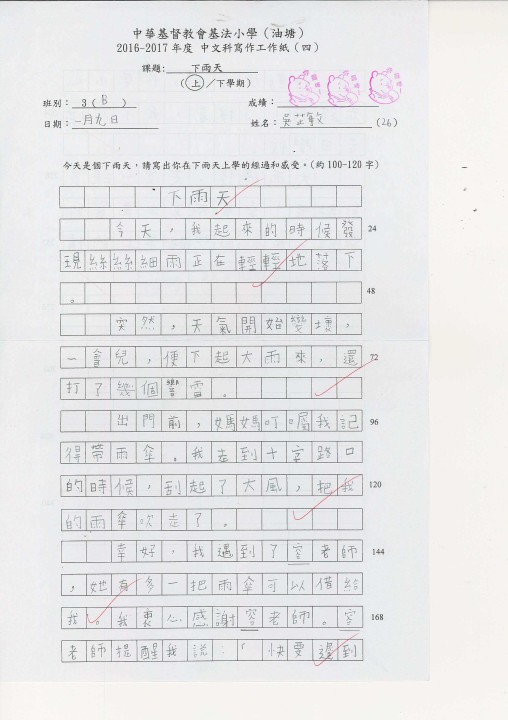 中華基督教會基法小學（油塘）
2016-2017 年度 中文科寫作工作紙（四）
課題： 下雨天
（上／下學期）
班別： 3（B） 成績：
日期：一月九日 姓名：吳芷敏 (26)
今天是個下雨天，請寫出你在下雨天上學的經過和感受。(約 100-120 字)
下雨天
今天，我起來的時候發 24
現絲絲細雨正在輕輕地落下
。 48
突然，天氣開始變壞，
一會兒，便下起大雨來，還 72
打了幾個響雷。
出門前，媽媽叮囑我記 96
得帶雨傘。我走到十字路口
的時候，刮起了大風，把我 120
的雨傘吹走了。
幸好，我遇到了容老師 144
，她有多一把雨傘可以借給
我。我衷心感謝容老師。容 168
老師提醒我說：「快要遲到